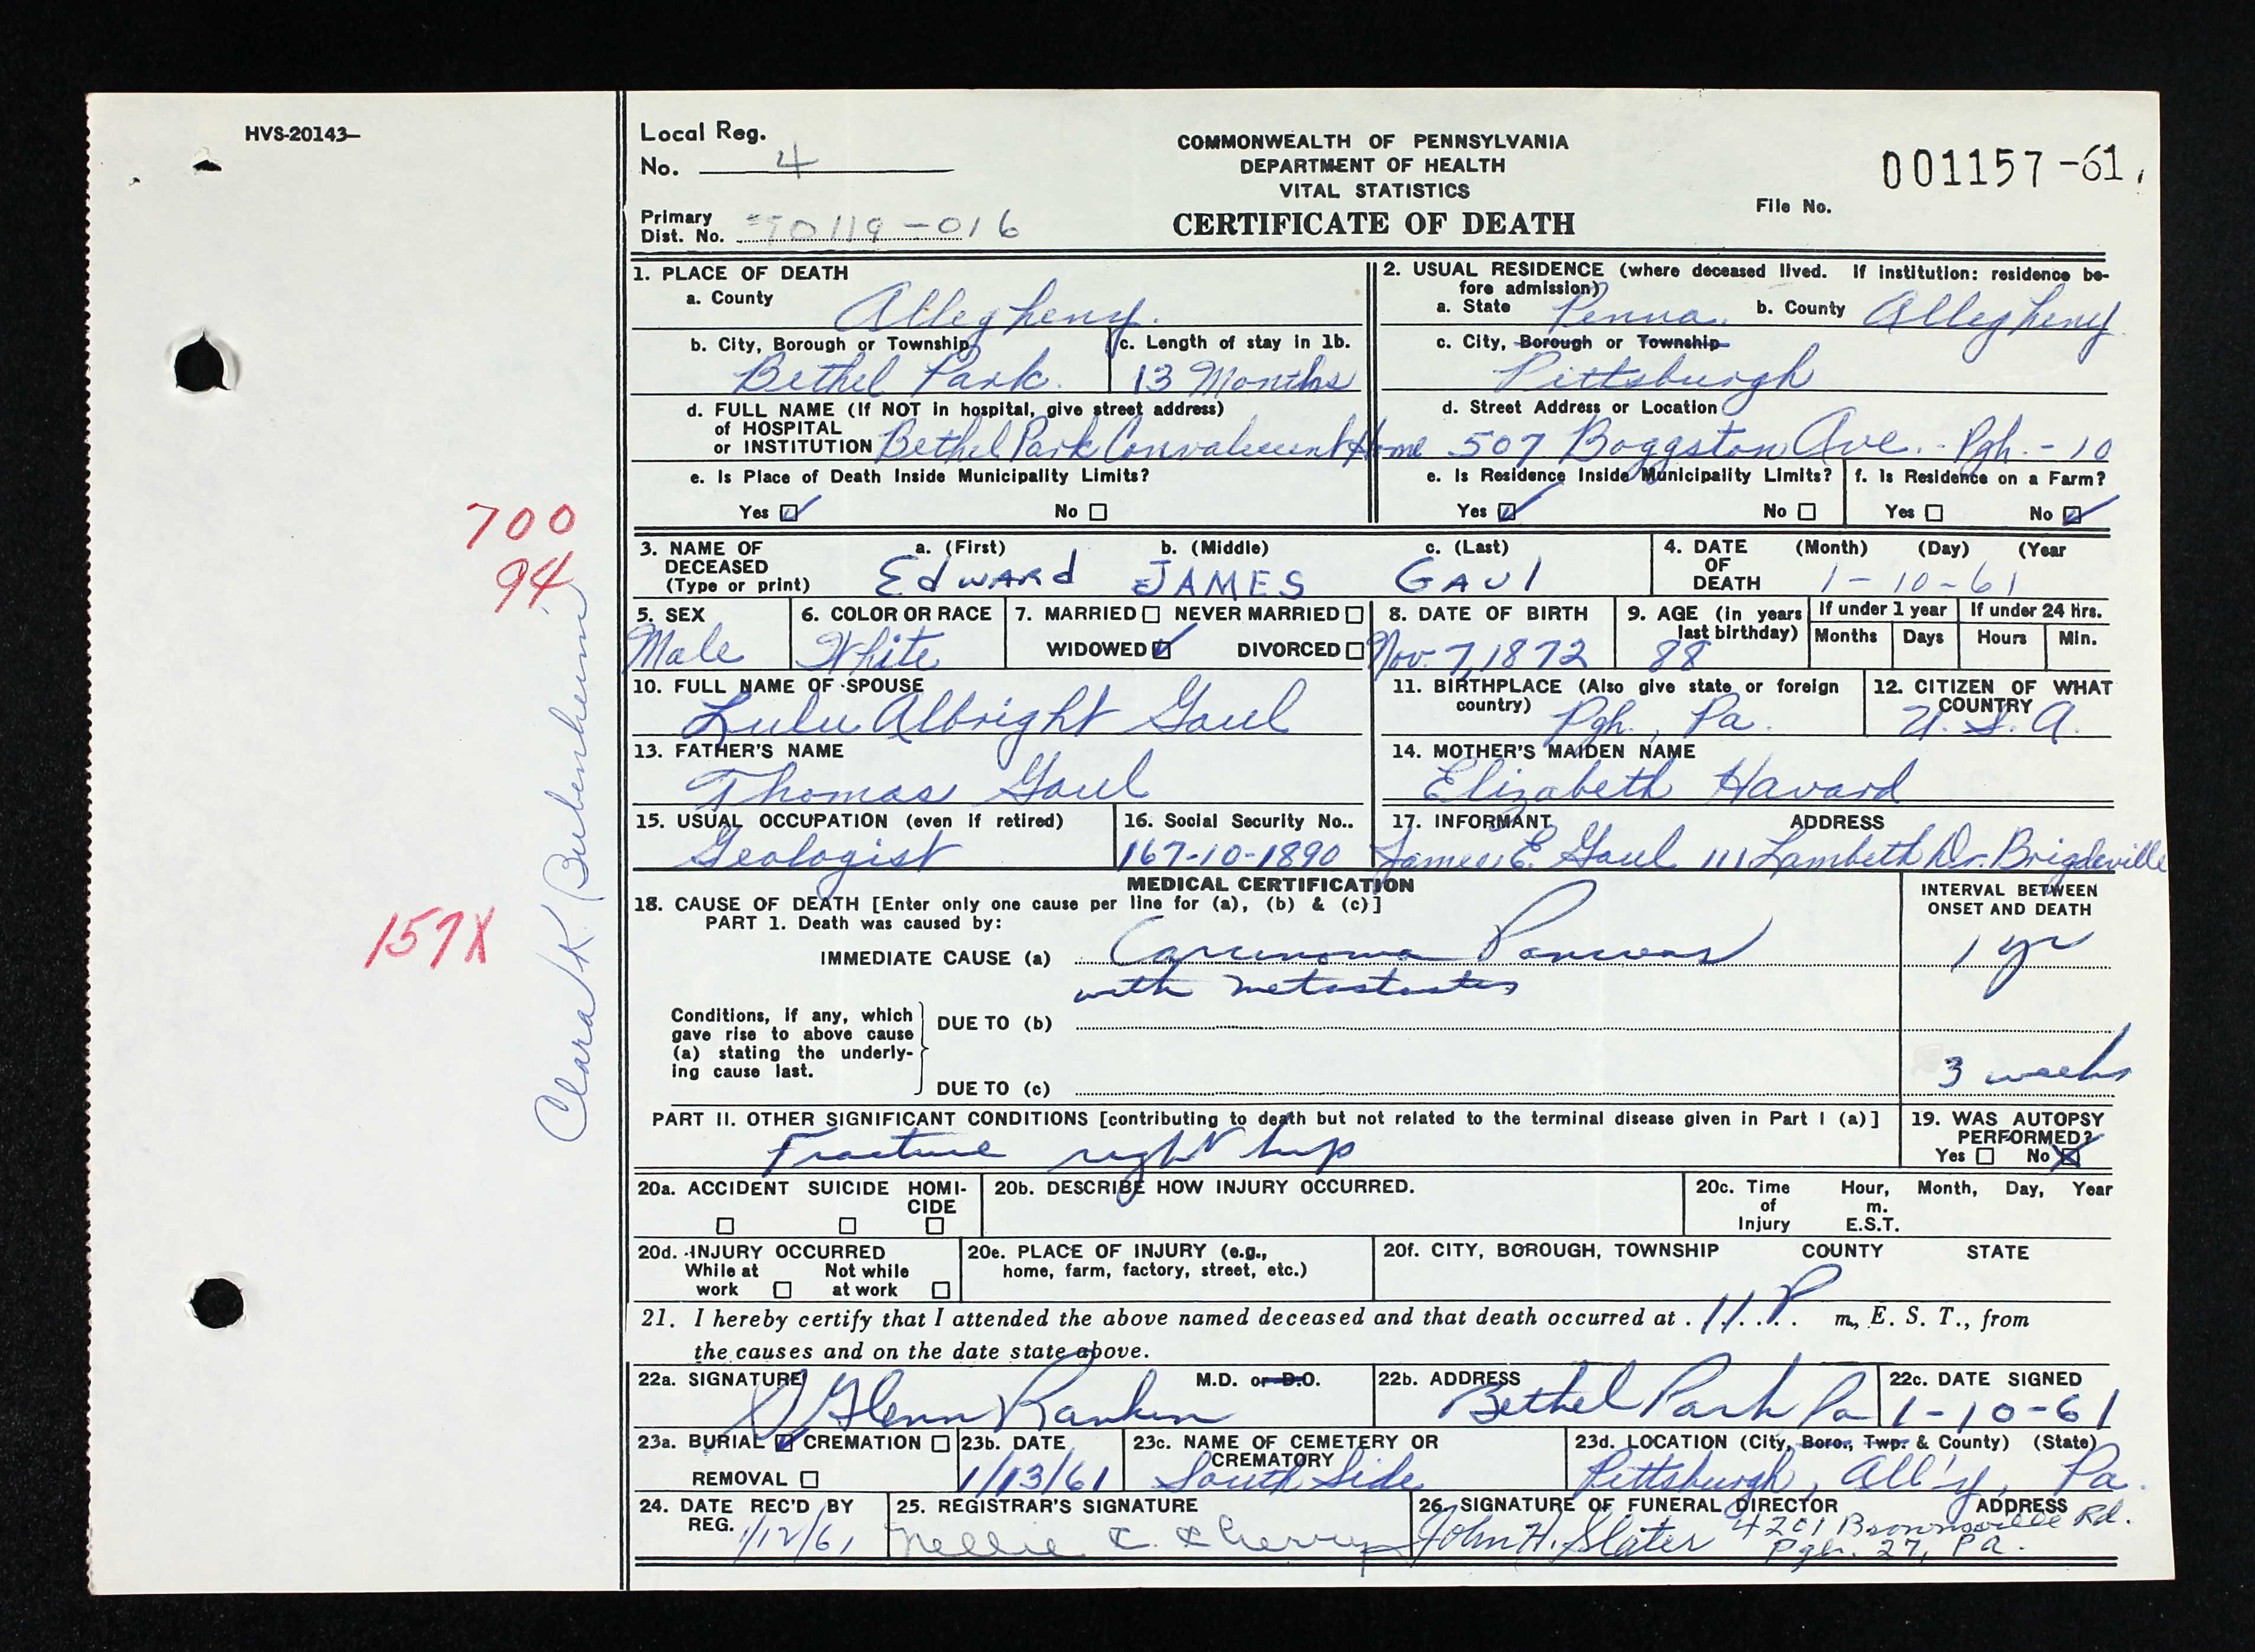 HVS-20143-
Local Reg.
No. 4
COMMONWEALTH OF PENNSYLVANIA
DEPARTMENT OF HEALTH
VITAL STATISTICS
CERTIFICATE OF DEATH
001157-61
File No.
Primary
Dist. No. 70119-016
1. PLACE OF DEATH
a. County Allegheny.
b. City, Borough or Township
Bethel Park.
c. Length of stay in 1b.
13 Months
d. FULL NAME (If NOT in hospital, give street address)
of HOSPITAL
or INSTITUTION Bethel Park Convalescent Home
e. Is Place of Death Inside Municipality Limits?
Yes No
2. USUAL RESIDENCE (where deceased lived. If institution: residence be-
fore admission)
a. State Penna. b. County Allegheny
c. City, Borough or Township
Pittsburgh
d. Street Address or Location
507 Boggston Ave. - Pgh. - 10
e. Is Residence Inside Municipality Limits?
Yes No
f. Is Residence on a Farm?
Yes No
700
94
3. NAME OF
DECEASED
(Type or print)
a. (First) b. (Middle) c. (Last)
Edward JAMES GAUl
4. DATE (Month) (Day) (Year
OF
DEATH 1-10-61
5. SEX
Male
6. COLOR OR RACE
White
7. MARRIED NEVER MARRIED
WIDOWED DIVORCED
8. DATE OF BIRTH
Nov. 7, 1872
9. AGE (in years
last birthday)
88
If under 1 year
Months Days
If under 24 hrs.
Hours Min.
10. FULL NAME OF SPOUSE
Lulu Albright Gaul
11. BIRTHPLACE (Also give state or foreign
country) Pgh., Pa.
12. CITIZEN OF WHAT
COUNTRY
U. S. A.
13. FATHER'S NAME
Thomas Gaul
14. MOTHER'S MAIDEN NAME
Elizabeth Havard
15. USUAL OCCUPATION (even if retired)
Geologist
16. Social Security No..
167-10-1890
17. INFORMANT ADDRESS
James E. Gaul 111 Lambeth Dr. Brigdeville
Clara K. Bubenheim
157X
MEDICAL CERTIFICATION
18. CAUSE OF DEATH [Enter only one cause per line for (a), (b) & (c)]
PART 1. Death was caused by:
INTERVAL BETWEEN
ONSET AND DEATH
IMMEDIATE CAUSE (a) Carcinoma Pancreas 1 yr
with metastastes
Conditions, if any, which
gave rise to above cause
(a) stating the underly-
ing cause last.
DUE TO (b)
DUE TO (c)
3 weeks
PART II. OTHER SIGNIFICANT CONDITIONS [contributing to death but not related to the terminal disease given in Part I (a)]
Fracture right hip
19. WAS AUTOPSY
PERFORMED?
Yes No
20a. ACCIDENT SUICIDE HOMI-
CIDE
20b. DESCRIBE HOW INJURY OCCURRED.
20c. Time Hour, Month, Day, Year
of m.
Injury E.S.T.
20d. INJURY OCCURRED
While at Not while
work at work
20e. PLACE OF INJURY (e.g.,
home, farm, factory, street, etc.)
20f. CITY, BOROUGH, TOWNSHIP COUNTY STATE
21. I hereby certify that I attended the above named deceased and that death occurred at . 11 . P . m., E. S. T., from
the causes and on the date state above.
22a. SIGNATURE M.D. or D.O.
Glenn Rankin
22b. ADDRESS
Bethel Park Pa
22c. DATE SIGNED
1-10-61
23a. BURIAL CREMATION
REMOVAL
23b. DATE
1/13/61
23c. NAME OF CEMETERY OR
CREMATORY
South Side
23d. LOCATION (City, Boro., Twp. & County) (State)
Pittsburgh, All'y, Pa.
24. DATE REC'D BY
REG. 1/12/61
25. REGISTRAR'S SIGNATURE
Nellie C. Cherry
26. SIGNATURE OF FUNERAL DIRECTOR ADDRESS
John H. Slater 4201 Brownsville Rd.
Pgh. 27, Pa.